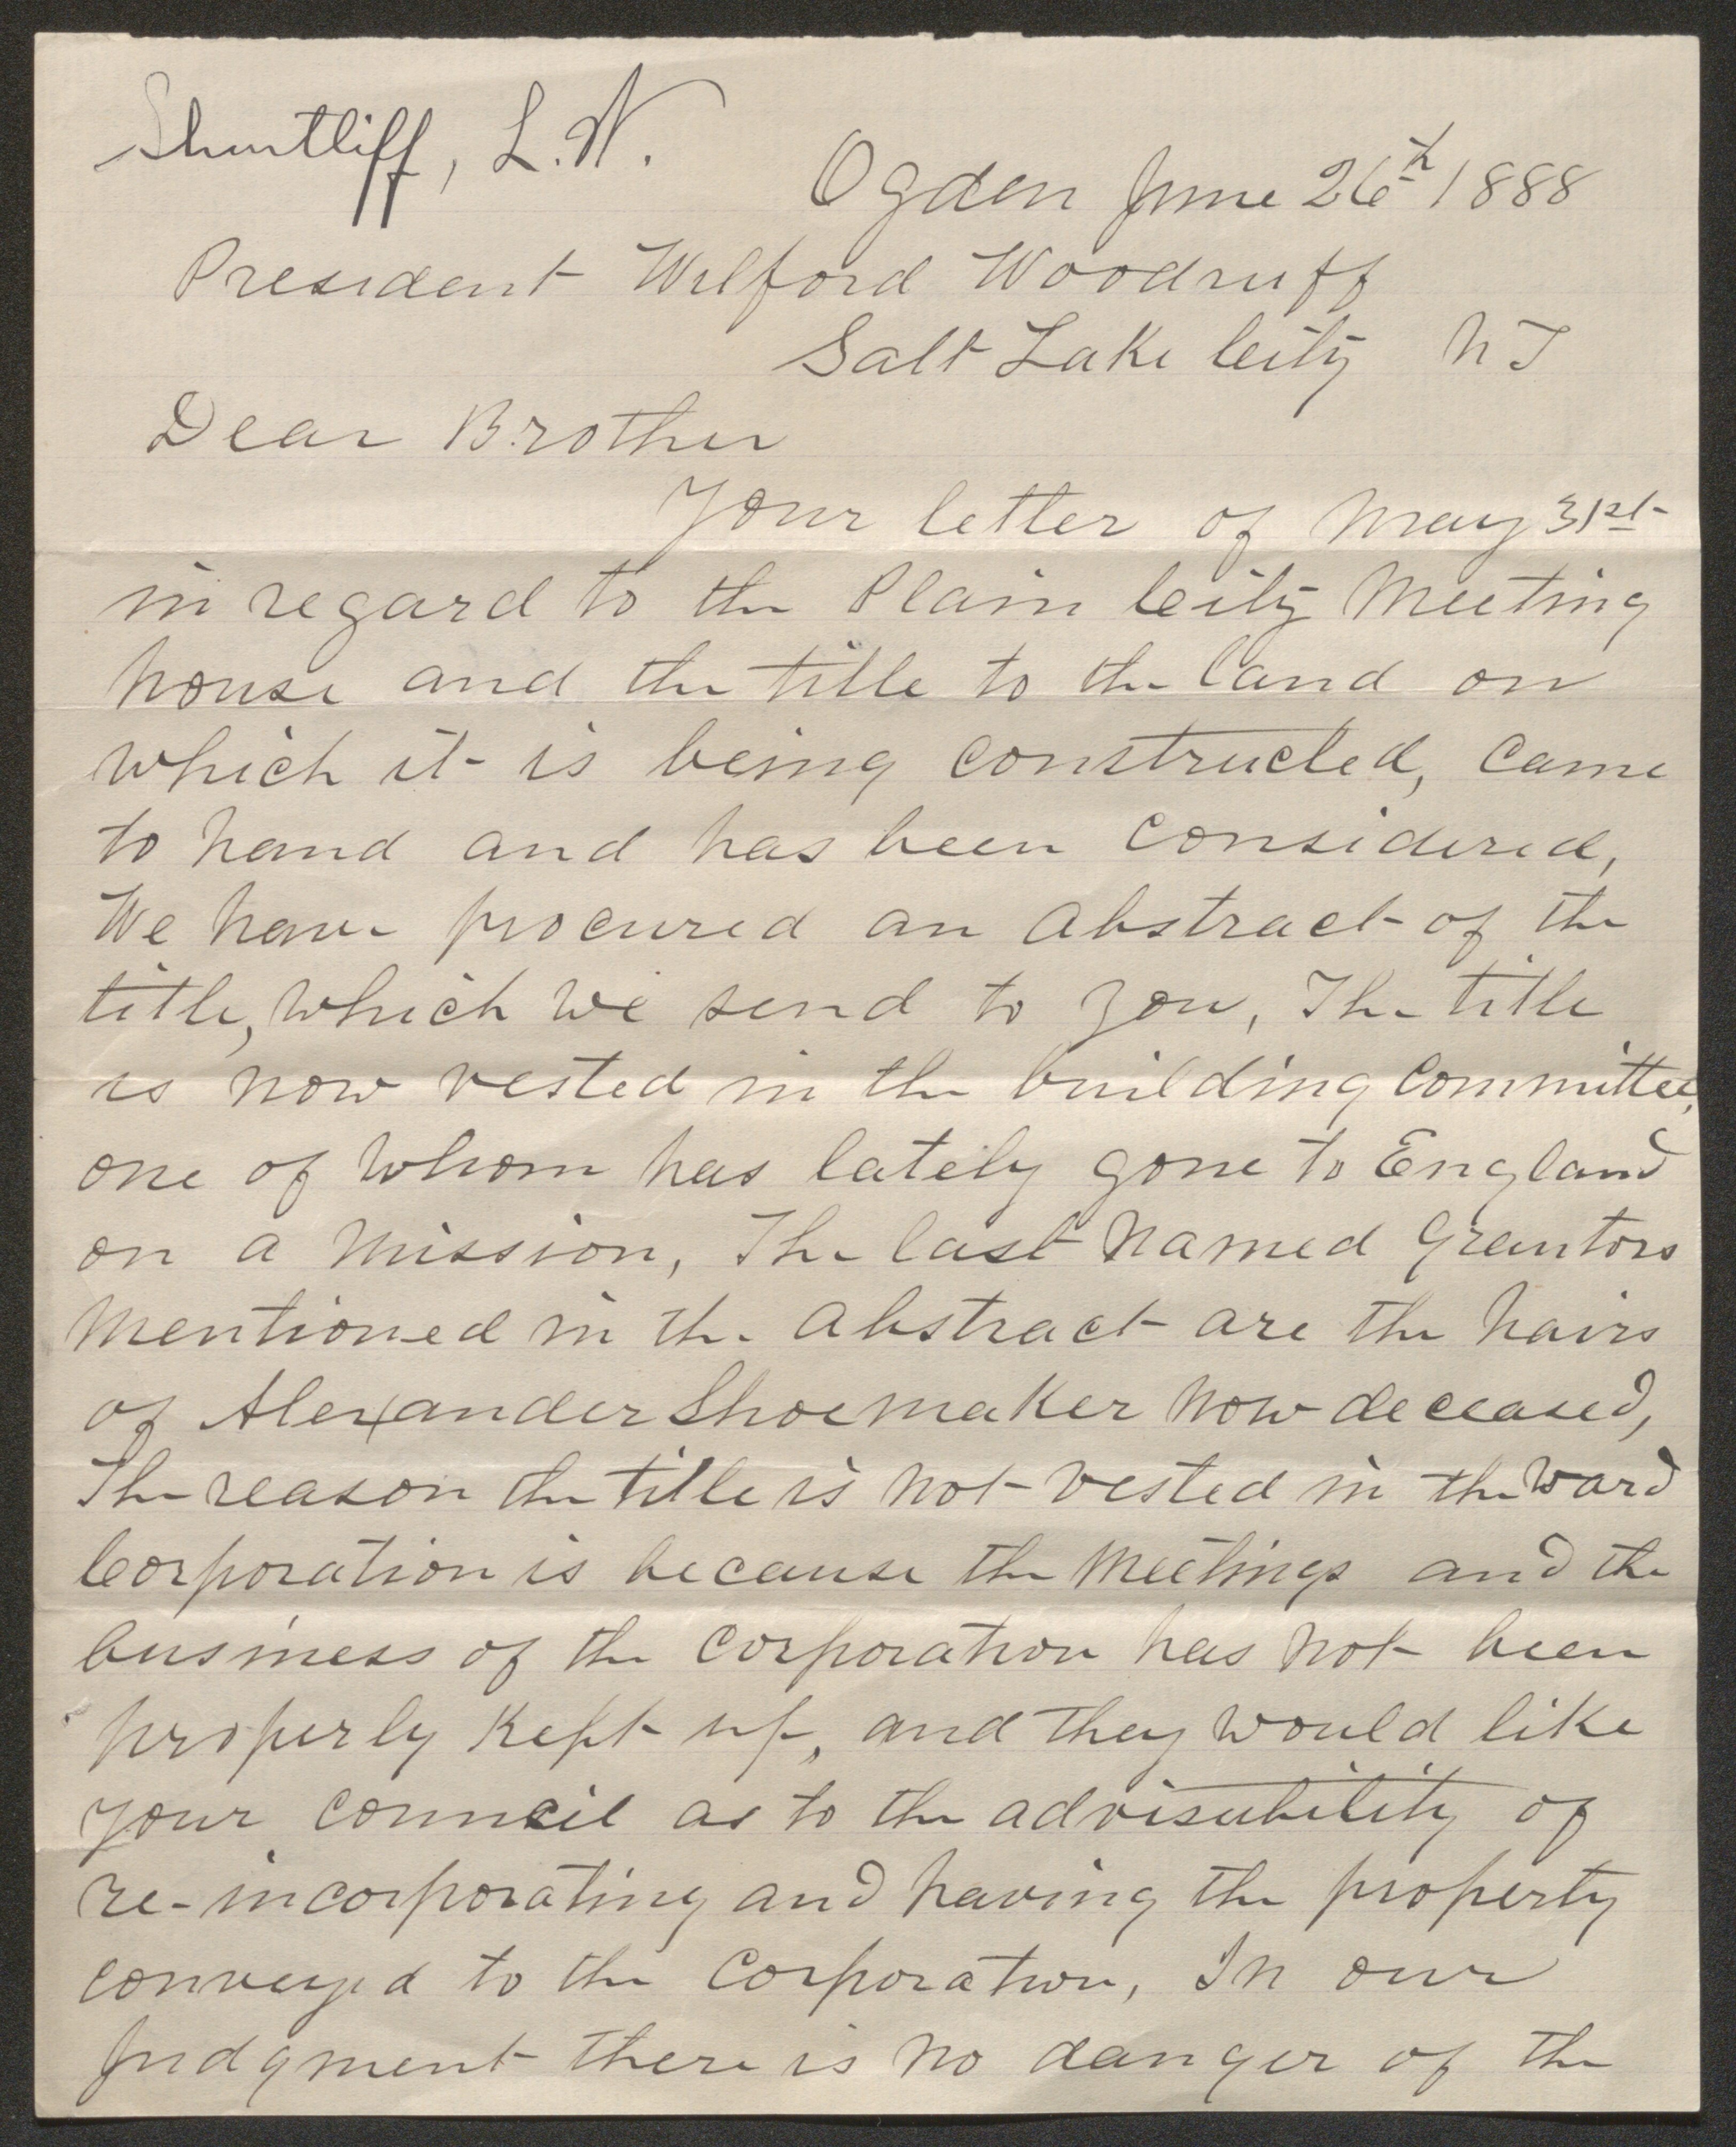 Shurtliff, L.W.
Ogden June 26th 1888
President Wilford Woodruff
Salt Lake City UT
Dear Brother
Your letter of May 31st
in regard to the Plain City Meeting
house and the title to the land on
which it is being constructed, came
to hand and has been considered,
We have procured an abstract of the
title, which we send to you, The title
is now vested in the building committee,
one of whom has lately gone to England
on a mission, The last named Grantors
mentioned in the abstract are the hairs
of Alexander Shoemaker now deceased,
The reason the title is not vested in the Ward
Corporation is because the Meetings and the
business of the corporation has not been
properly kept up, and they would like
your council as to the advisability of
re-incorporating and having the property
conveyed to the Corporation, In our
judgment there is no danger of the